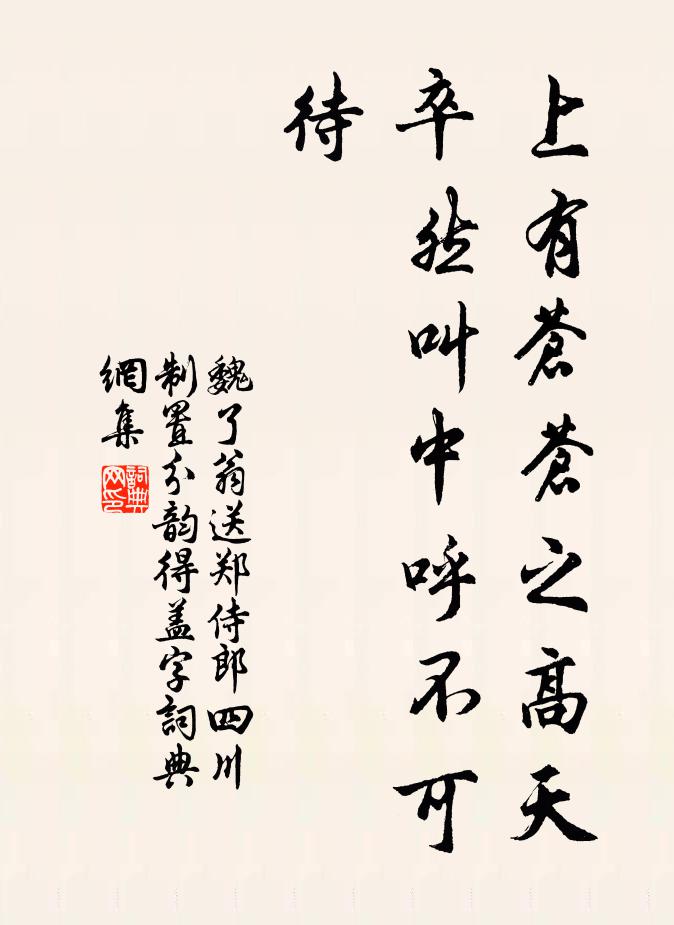 上有蒼蒼之高天
卒然叫中呼不可
待
魏了翁送郑侍郎四川
制置分韵得盖字詞典
網集
詞典
网印